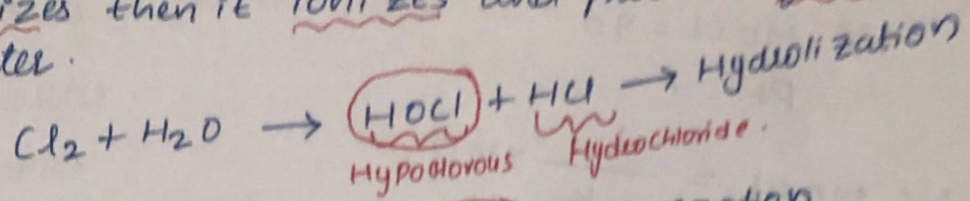 izes then it ionizes and
ter.
Cl2 + H2O → HOCl + HCl → Hydrolization
Hypoclorous Hydrochloride.